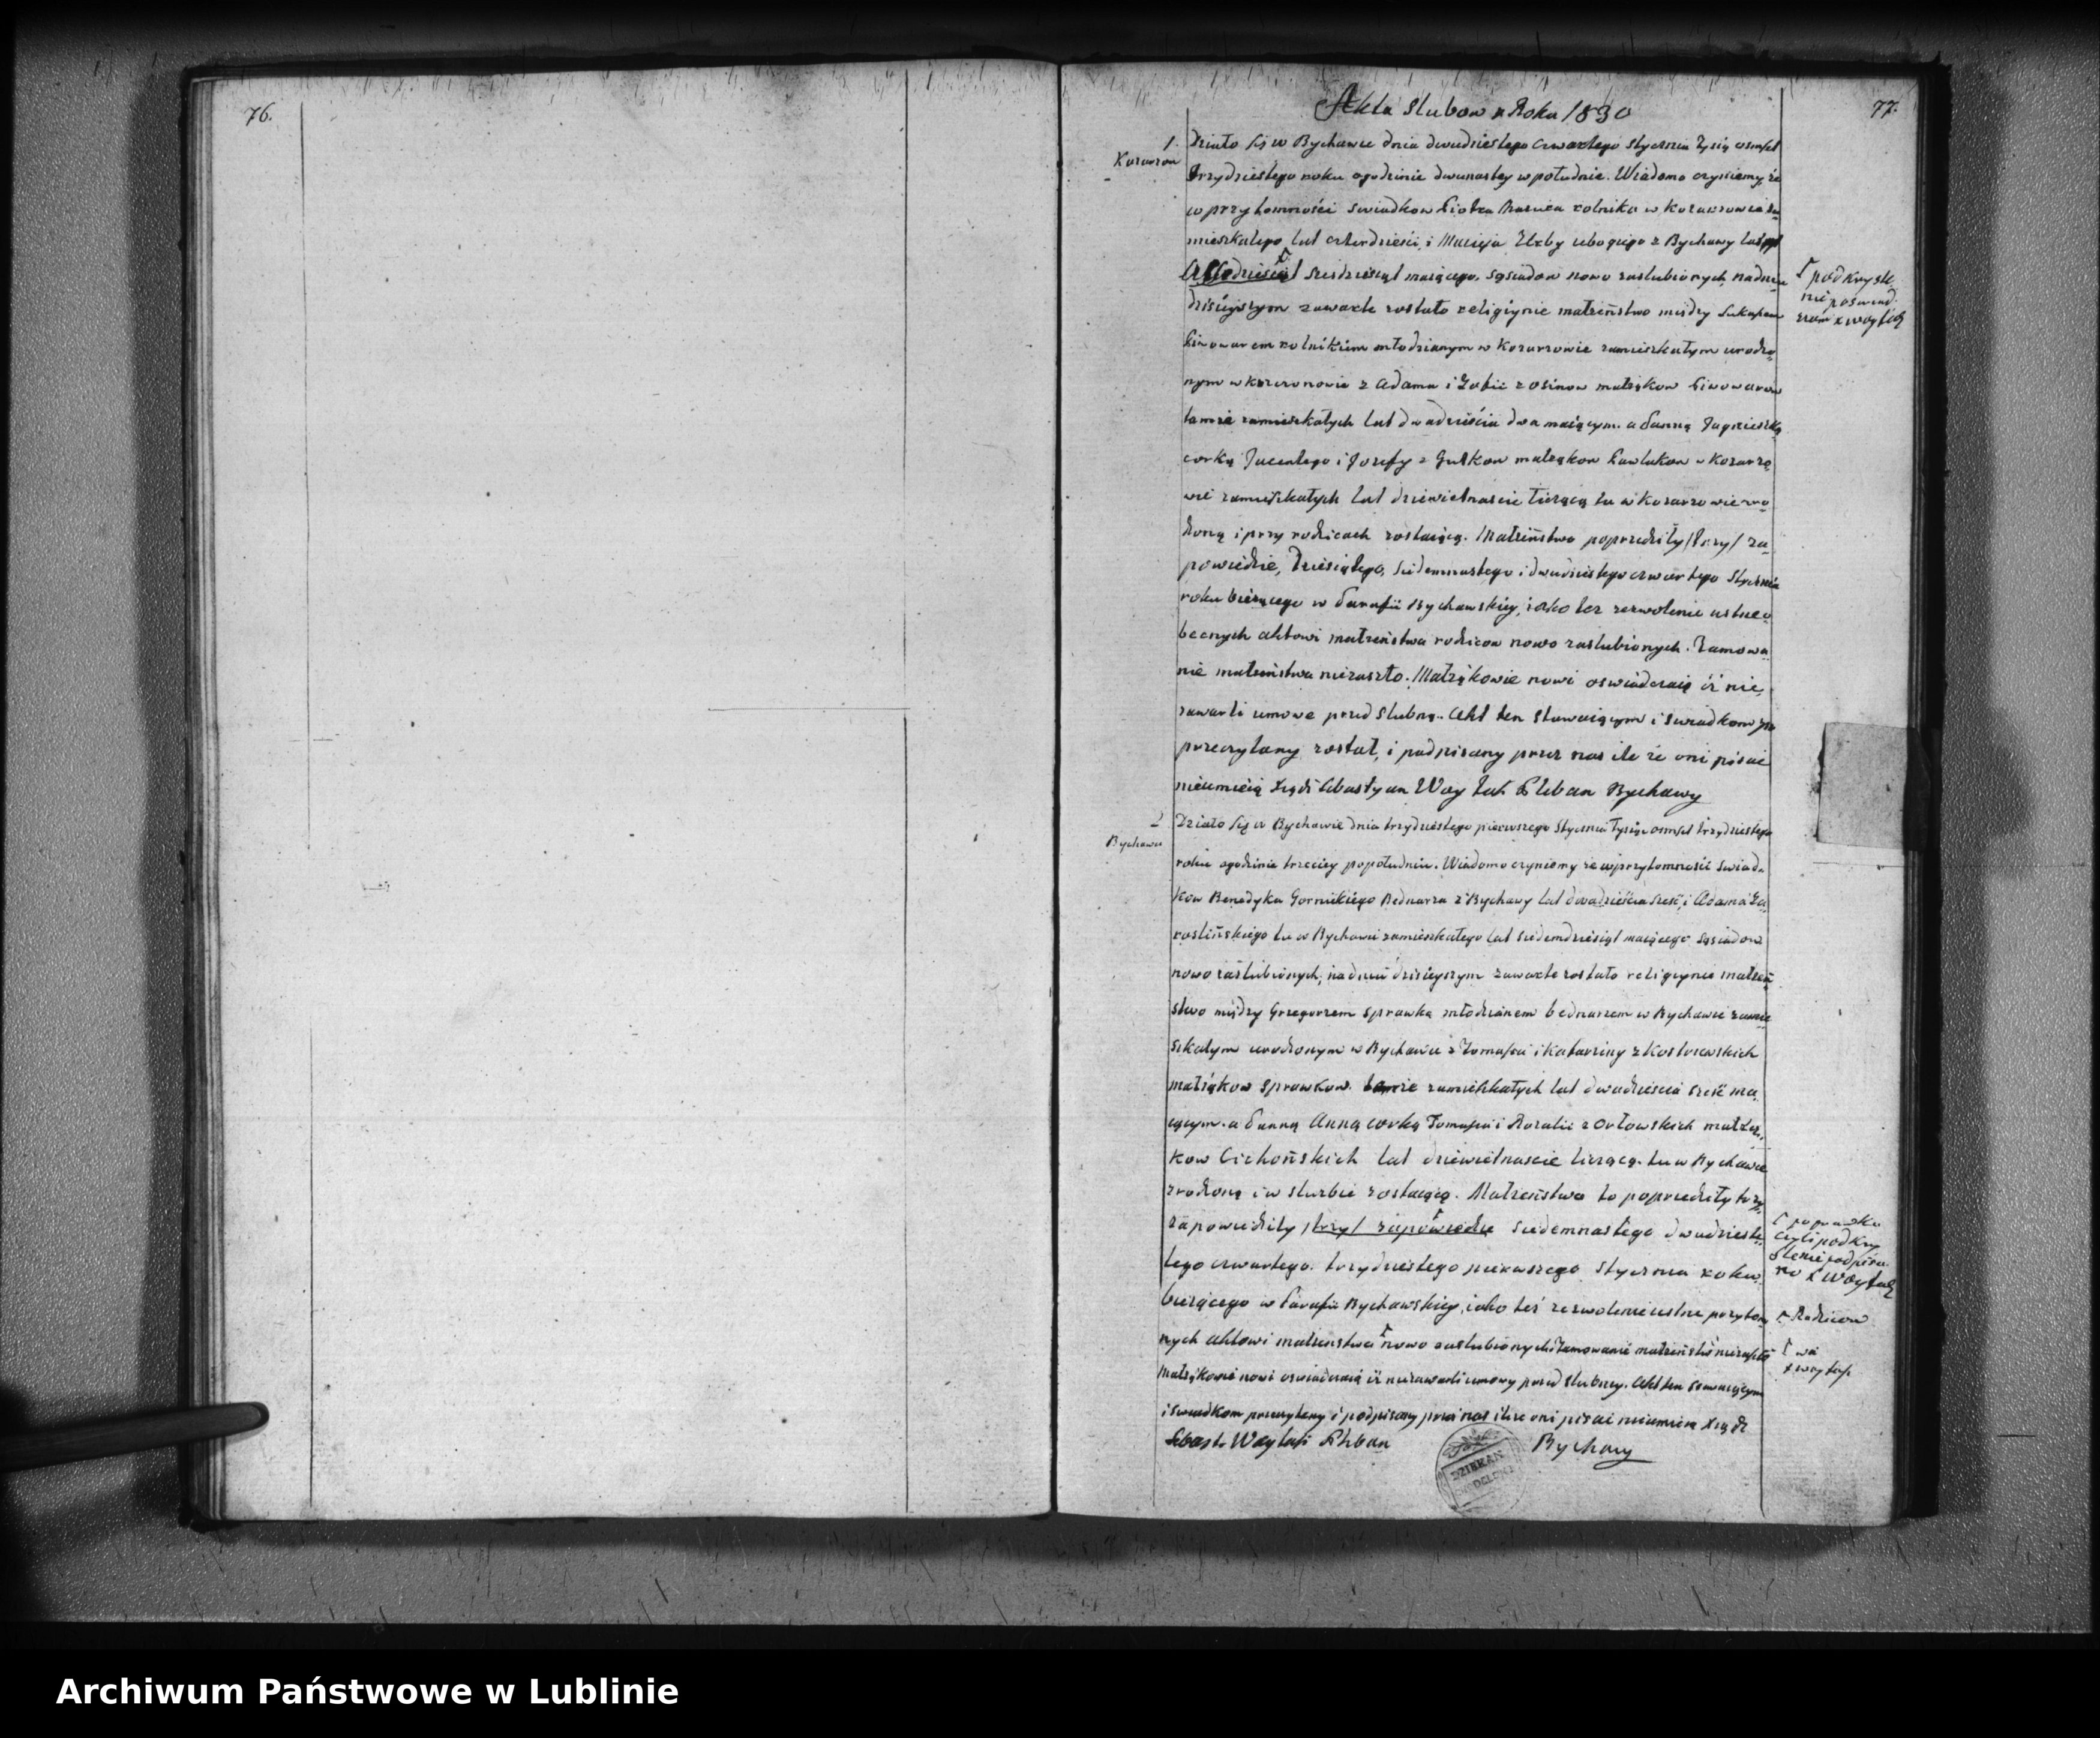 76.
77.
Akta Slubow z Roku 1830
1.
Kozarzow
Działo się w Bychawie dnia dwudziestego czwartego stycznia Tysiąc osmset
trzydziestego roku o godzinie dwunastey w południe. Wiadomo czyniemy, że
w przytomności swiadkow Piotra rolnika w Kozarzowie za
mieszkałego lat czterdzieści, i Macieja ubogiego z Bychawy lat
sześdziesiąt maiącego, sąsiadow nowo zaslubionych, na dniu
dzisieyszym zawarte zostało religiynie małżeństwo między Łukaszem
Piwowarem rolnikiem młodzianym w Kozarzowie zamieszkałym urodzo
nym w z Adama i Zofii z Osinow małżąkow Piwowarow
tamże zamieszkałych lat dwadzieścia dwa maiącym. a Panną Jagnieszką
corką Jacentego i Jozefy z małżąkow Pawlakow w Kozarzo
wie zamieszkałych lat dziewietnascie liczącą tu w Kozarzowie zro
dzoną i przy rodzicach zostaiącą. Małżeństwo poprzedziły /trzy/ za
powiedzie, Dziesiątego, siedemnastego i dwudziestego czwartego Stycznia
roku bieżącego w Parafii Bychawskiey, iako tez zezwolenie ustne o
becnych aktowi małżeństwa rodzicow nowo zaslubionych. Tamowa
nie małżeństwa niezaszło. Małżąkowie nowi oswiadczaią iż nie
zawarli umowe przed slubną. Akt ten stawaiącym i swiadkom
przeczytany został, i podpisany przez nas ile że oni pisać
nieumieią Xiądz Sebastyan Woytas Pleban Bychawy
podkrysle
nie poswiad
czam X Woytas
2
Bychawa
Działo się w Bychawie dnia trzydziestego pierwszego stycznia Tysiąc osmset trzydziestego
roku o godzinie trzeciey popołudniu. Wiadomo czyniemy że w przytomności swiad
kow Benedyka Gornickiego Bednarza z Bychawy lat dwadzieścia sześć, i Adama Za
roslińskiego tu w Bychawie zamieszkałego lat siedemdziesiąt maiącego sąsiadow
nowo zaślubionych, na dniu dzisieyszym zawarte zostało religiynie małżeń
stwo między Grzegorzem Sprawką młodzianem bednarzem w Bychawie zamie
szkałym urodzonym w Bychawie z Tomasza i Katarzyny z Kostrzewskich
małżąkow Sprawkow. tamże zamieszkałych lat dwadzieścia sześć ma
iącym. a Panną Anną corką Tomasza i Rozalii z Orłowskich małżą
kow Cichońskich lat dziewietnascie liczącą. tu w Bychawie
zrodzoną i w służbie zostaiącą. Małżeństwo to poprzedziły trzy
zapowiedziły /trzy/ zapowiedzie siedemnastego dwudzieste
tego czwartego. trzydziestego pierwszego stycznia roku
bieżącego w Parafii Bychawskiey, iako też zezwolenie ustne przytom
nych aktowi małżenstwa nowo zaslubionych. Tamowanie małżeństwa niezaszło
Małżąkowie nowi oswiadczaią iż niezawarli umowy przed slubney. Akt ten stawaiącym
i swiadkom przeczytany i podpisany przez nas ile że oni pisać nieumieią Xiądz
Sebast. Woytas Pleban Bychawy
poprawka
czyli podkry
slenie podpisa
no X Woytas
Rodzicow
X Woytas
DZIEKAN
Archiwum Państwowe w Lublinie